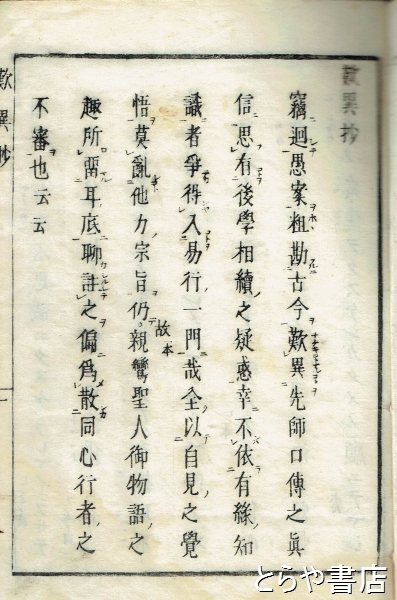 歎異抄
竊廻愚案粗勘古今歎異先師口傳之眞
信思有後學相續之疑惑幸不依有緣知
識者爭得入易行一門哉全以自見之覺
悟莫亂他力宗旨仍故親鸞聖人御物語之
本
趣所畱耳底聊註之偏爲散同心行者之
不審也云云
歎異抄
一
とらや書店